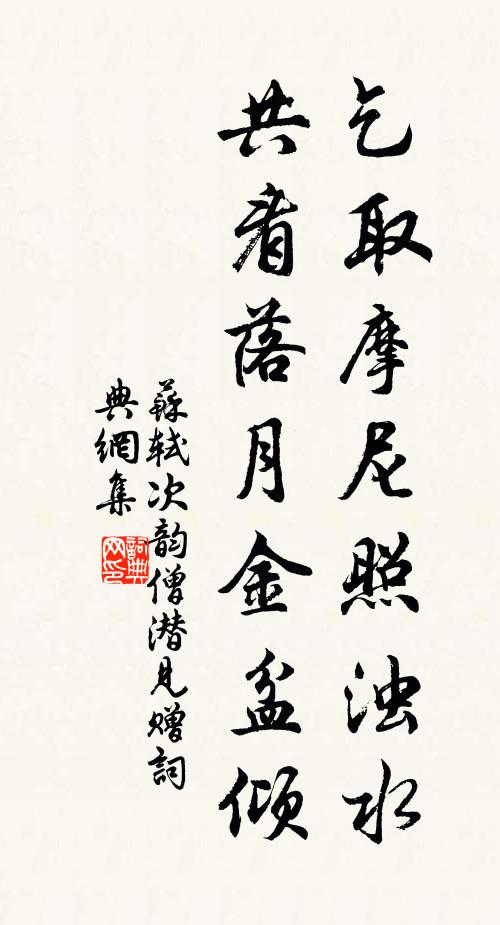 乞取摩尼照浊水
共看落月金盆倾
蘇軾次韵僧潜见赠詞
典網集
詞典
网印